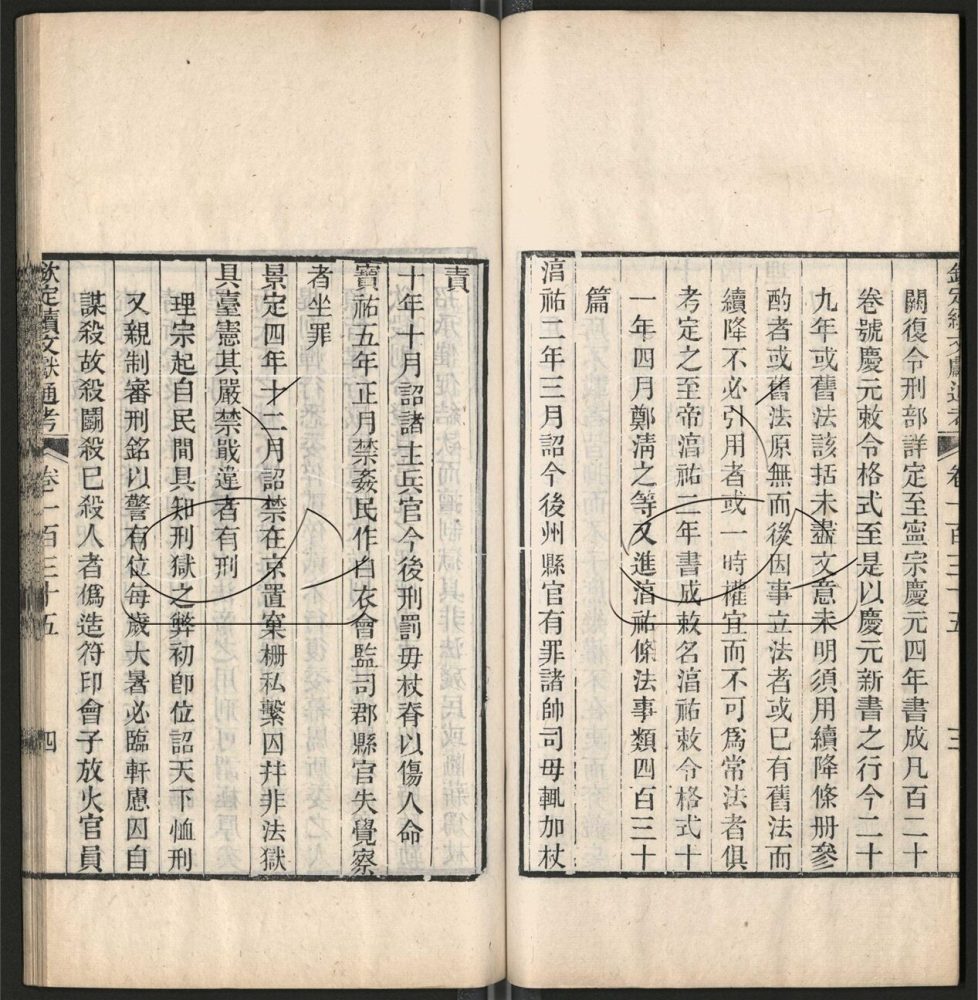 欽定續文獻通考 卷一百三十五 三
闕復令刑部詳定至寧宗慶元四年書成凡百二十
卷號慶元敕令格式至是以慶元新書之行今二十
九年或舊法該括未盡文意未明須用續降條册參
酌者或舊法原無而後因事立法者或已有舊法而
續降不必引用者或一時權宜而不可爲常法者俱
考定之至帝湻祐二年書成敕名湻祐敕令格式十
一年四月鄭淸之等又進湻祐條法事類四百三十
篇
湻祐二年三月詔今後州縣官有罪諸帥司毋輒加杖
責
十年十月詔諸主兵官今後刑罰毋杖脊以傷人命
寶祐五年正月禁姦民作白衣會監司郡縣官失覺察
者坐罪
景定四年十二月詔禁在京置窠柵私繫囚并非法獄
具臺憲其嚴禁戢違者有刑
理宗起自民間具知刑獄之弊初卽位詔天下恤刑
又親制審刑銘以警有位每歲大暑必臨軒慮囚自
謀殺故殺鬭殺已殺人者僞造符印會子放火官員
欽定續文獻通考 卷一百三十五 四